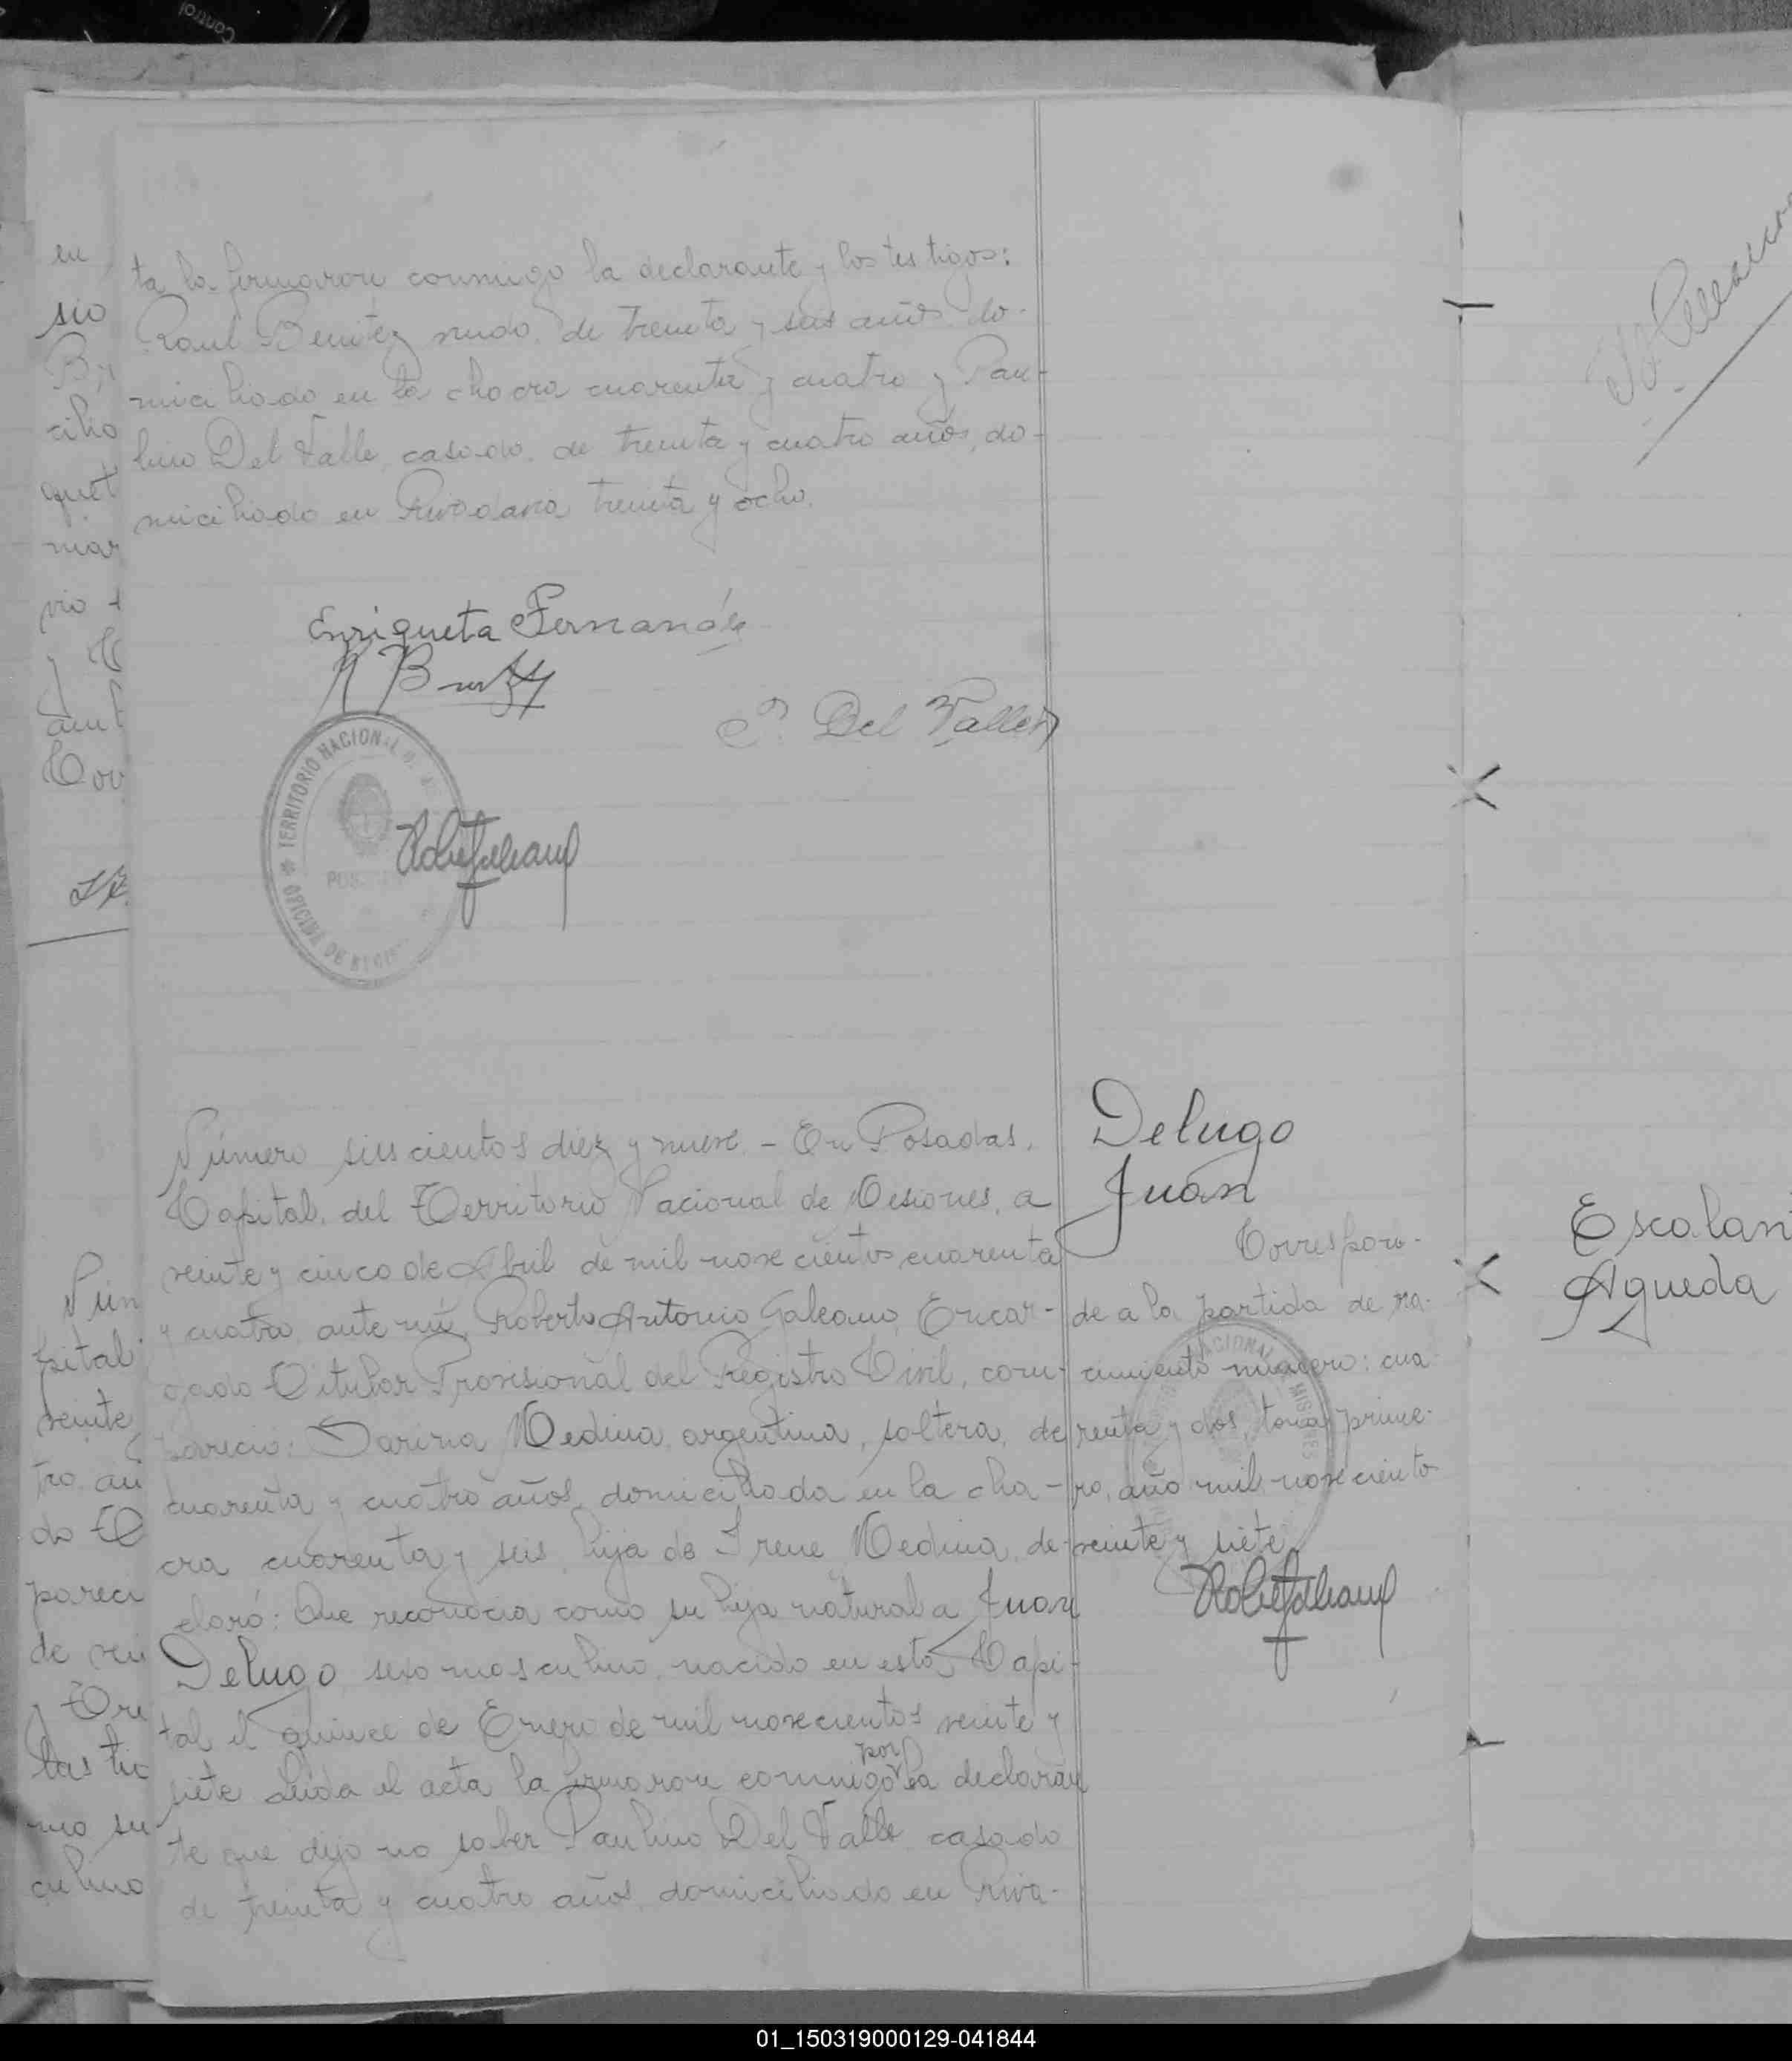 Control
ta la firmaron conmigo la declarante y los testigos:
Raul Benitez viudo de treinta y seis años do-
miciliado en la chacra cuarenta y cuatro y Pau-
lino Del Valle, casado, de treinta y cuatro años, do-
miciliado en Rivadavia treinta y ocho.
Enriqueta Fernandez
P. Del Valle
TERRITORIO NACIONAL
OFICINA DE REGIS
Número seiscientos diez y nueve. - En Posadas,
Capital del Territorio Nacional de Misiones, a
veinte y cinco de Abril de mil novecientos cuarenta
y cuatro, ante mí, Roberto Antonio Galeano, Encar-
gado Titular Provisional del Registro Civil, com-
pareció: Medina, argentina, soltera, de
cuarenta y cuatro años, domiciliada en la cha-
cra cuarenta y seis hija de Irene Medina, de-
claró: Que reconocia como su hijo natural a Juan
Delugo sexo masculino, nacido en esta Capi-
tal el quince de Enero de mil novecientos veinte y
siete. Leida el acta la firmaron conmigo por la declaran
te que dijo no saber Paulino Del Valle casado
de treinta y cuatro años, domiciliado en Riva-
Delugo
Juan
Correspon-
de a la partida de na-
cimiento número: cua-
renta y dos, tomo prime-
ro, año mil novecientos
veinte y siete.
en
sio
cilio
quet
mar
Núm
pital
veinte
tro añ
pareci
culino
Escalan
Agueda
01_150319000129-041844